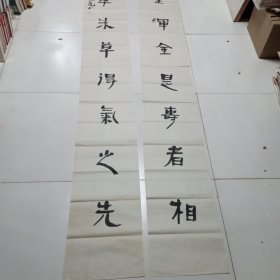 渾金是壽者相
朱草得氣之先